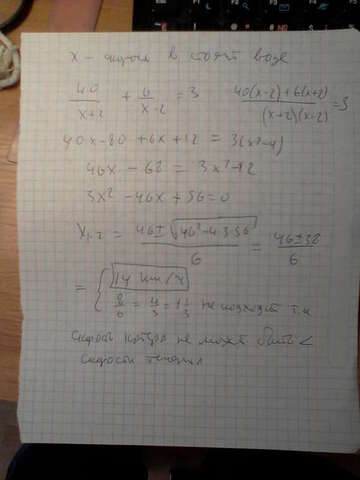 x - скорость в стоят воде
40/(x+2) + 6/(x-2) = 3    (40(x-2)+6(x+2))/((x+2)(x-2)) = 3
40x-80 + 6x + 12 = 3(x²-4)
46x - 68 = 3x²-12
3x² - 46x + 56 = 0
x₁,₂ = (46±√(46²-4·3·56))/6 = (46±38)/6
= { 14 км/ч
8/6 = 4/3 = 1 1/3 не подходит т.к
скорость катера не может быть <
скорости течения